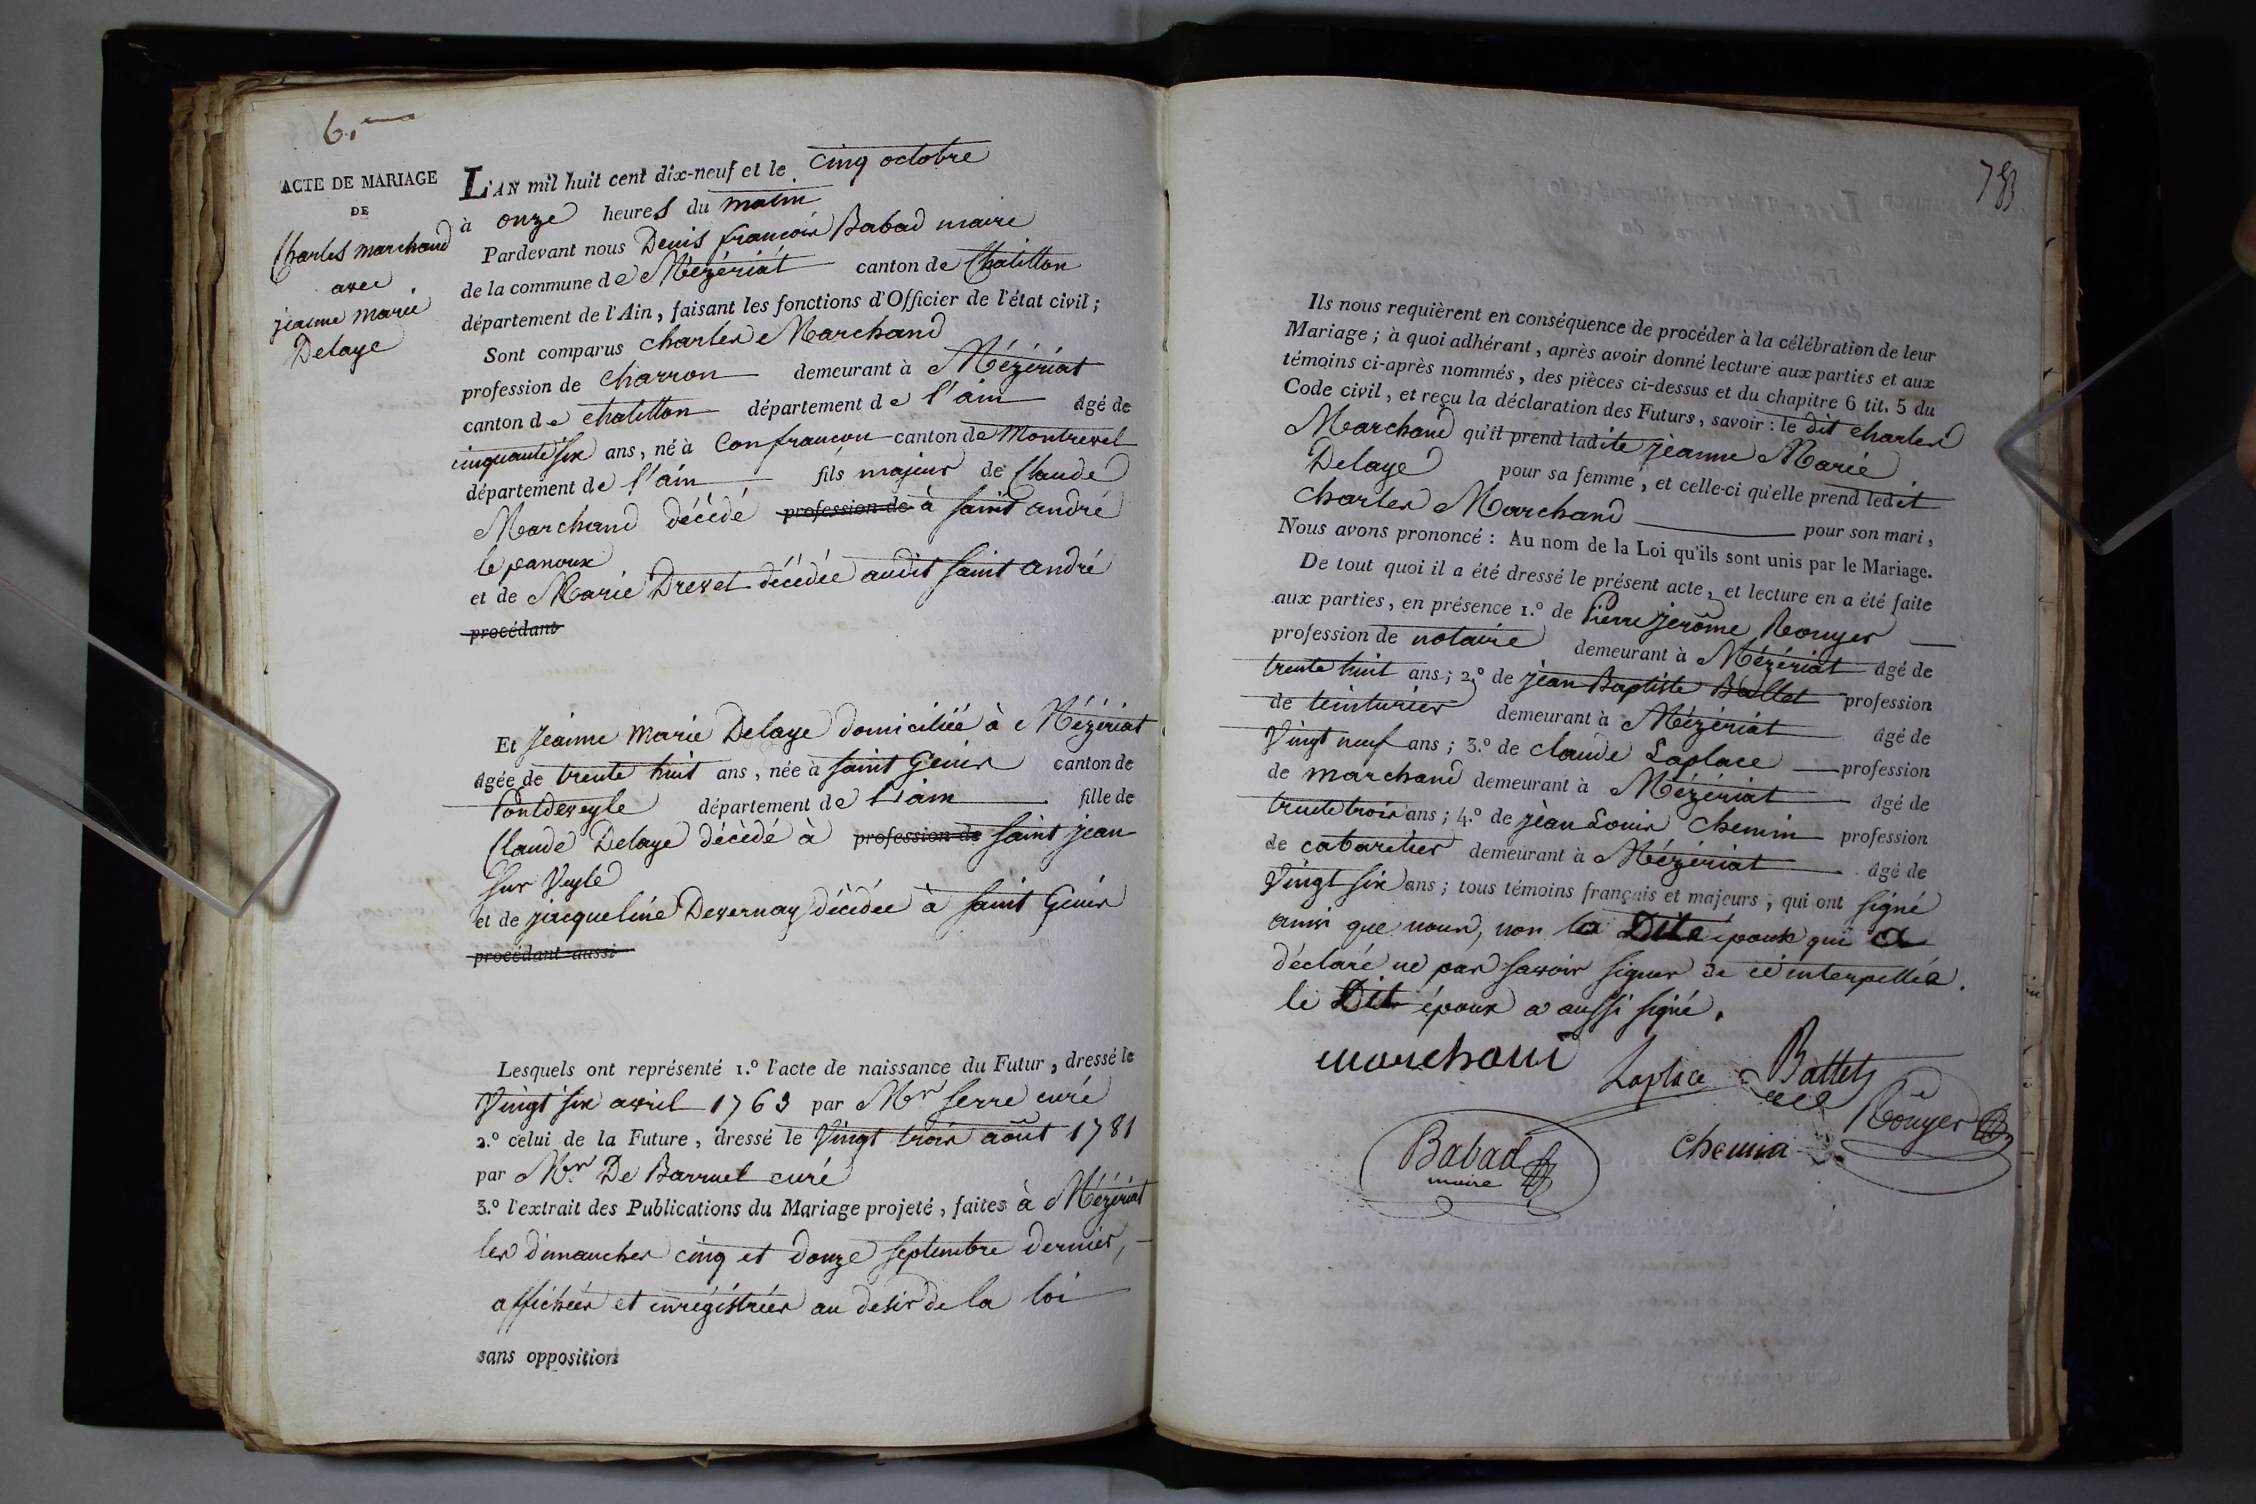 6.me
ACTE DE MARIAGE
DE
Charles marchand
avec
jeanne marie
Delaye
L'AN mil huit cent dix-neuf et le cinq octobre
à onze heures du matin
Pardevant nous Denis françois Babad maire
de la commune de Mézériat canton de Chatillon
département de l'Ain, faisant les fonctions d'Officier de l'état civil ;
Sont comparus charles Marchand
profession de charron demeurant à Mézériat
canton de chatillon département de l'ain âgé de
cinquante six ans, né à Confrançon canton de Montrevel
département de l'ain fils majeur de Claude
Marchand décédé profession de à saint andré
le panoux
et de Marie Drevet décédée audit saint andré
procédant
Et jeanne Marie Delaye domiciliée à Mézériat
âgée de trente huit ans, née à saint Genis canton de
Pontdeveyle département de l'ain fille de
Claude Delaye décédé à profession de saint jean
sur Veyle
et de jacqueline Devernay décédée à saint Genis
procédant aussi
Lesquels ont représenté 1.º l'acte de naissance du Futur, dressé le
Vingt six avril 1763 par Mr serre curé
2.º celui de la Future, dressé le Vingt trois août 1781
par Mr De Barruel curé
3.º l'extrait des Publications du Mariage projeté, faites à Mézériat
les dimanches cinq et douze septembre dernier,
affichées et enrégistrées au desir de la loi
sans opposition
Ils nous requièrent en conséquence de procéder à la célébration de leur
Mariage ; à quoi adhérant, après avoir donné lecture aux parties et aux
témoins ci-après nommés, des pièces ci-dessus et du chapitre 6 tit. 5 du
Code civil, et reçu la déclaration des Futurs, savoir : le dit charles
Marchand qu'il prend ladite jeanne Marie
Delaye pour sa femme, et celle-ci qu'elle prend ledit
charles Marchand pour son mari,
Nous avons prononcé : Au nom de la Loi qu'ils sont unis par le Mariage.
De tout quoi il a été dressé le présent acte, et lecture en a été faite
aux parties, en présence 1.º de Pierre jerôme Rouyer
profession de notaire demeurant à Mézériat âgé de
trente huit ans ; 2.º de jean Baptiste Battet profession
de teinturier demeurant à Mézériat âgé de
Vingt neuf ans ; 3.º de claude Laplace profession
de marchand demeurant à Mézériat âgé de
trente trois ans ; 4.º de jean Louis Chemin profession
de cabaretier demeurant à Mézériat âgé de
Vingt six ans ; tous témoins français et majeurs, qui ont signé
ainsi que nous, non la Dite épouse qui a
déclaré ne pas savoir signer de ce interpellée.
le Dit époux a aussi signé.
marchand
Laplace
Battet
Rouyer
Babad
maire
chemin